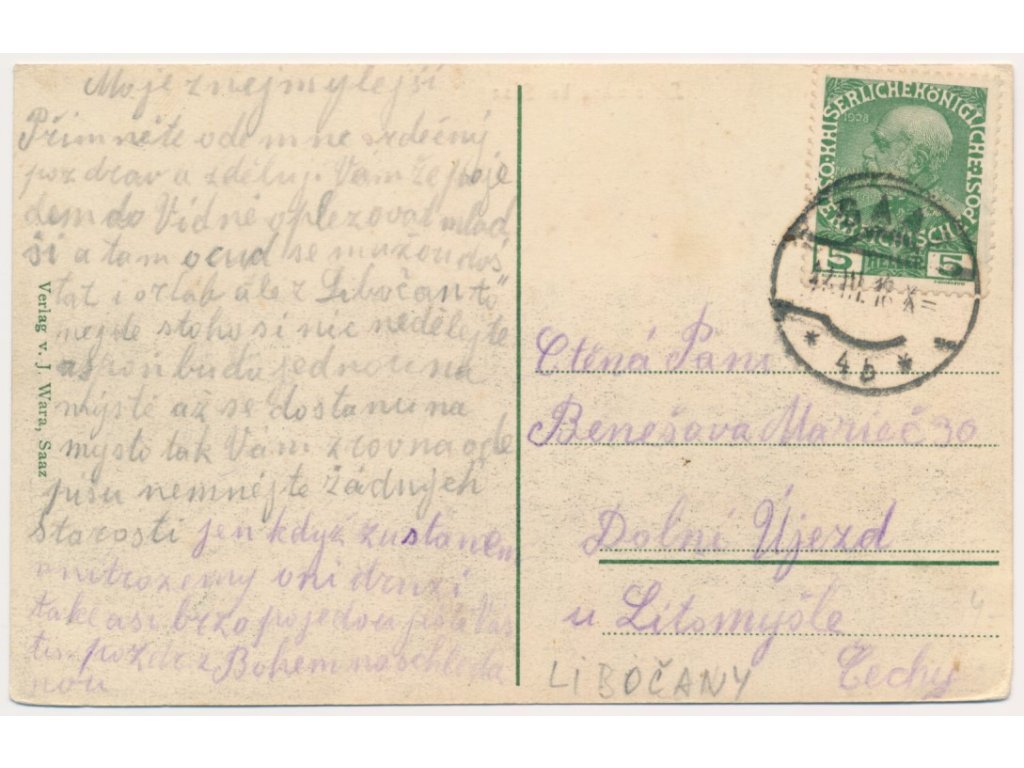 Moje znejmylejší
Přimněte ode mne srdečný
pozdrav a zděluji Vám že poje
dem do Vídně mlad
ši a tam ocud se mužou dos
tat i ale z Libočan to
nejde stoho si nic nedělejte
aspoň budu jednou na
mýstě až se dostanu na
mysto tak Vám zrovna ode
pisu nemnějte žádných
starosti jen když zustanem
oni druzi
také asi brzo pojedou
pozdr z Bohem naschleda
nou
Verlag v. J. Wara, Saaz
K.K. ÖSTERREICHISCHE POST
1908
5 HELLER 5
SAAZ
17.III.16.X
* 4b *
Ctěná Páni
Benešova Marie č 30
Dolní Újezd
u Litomyšle
Čechy
LIBOČANY